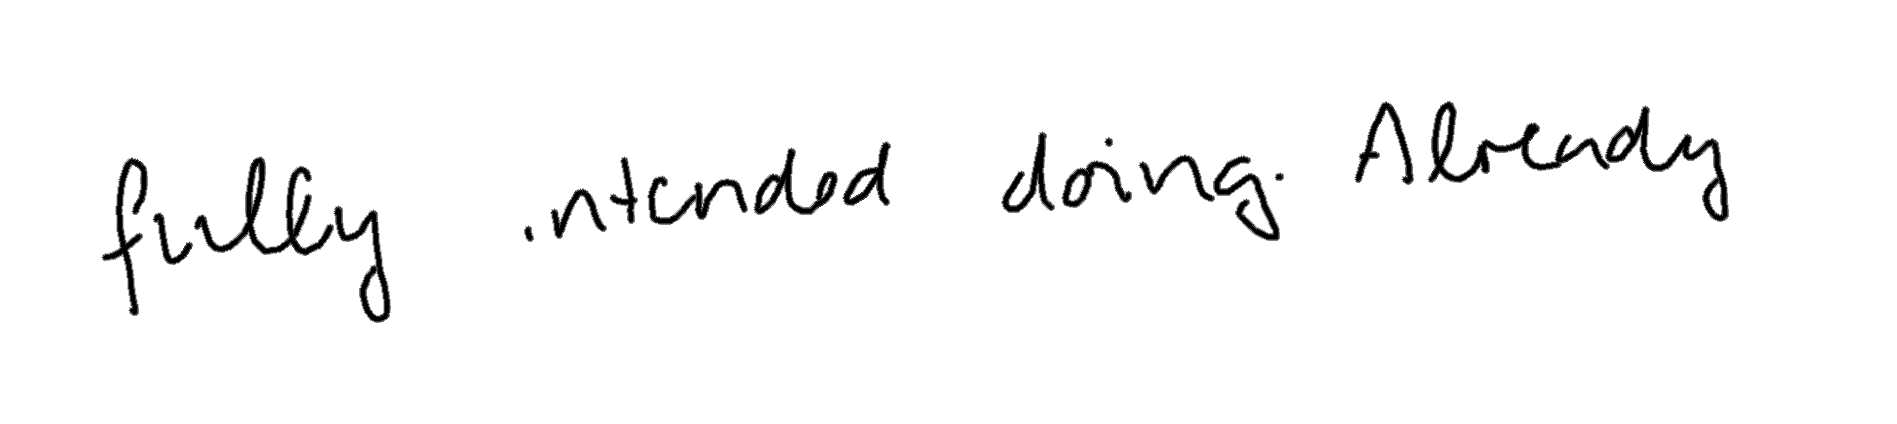 fully intended doing. Already